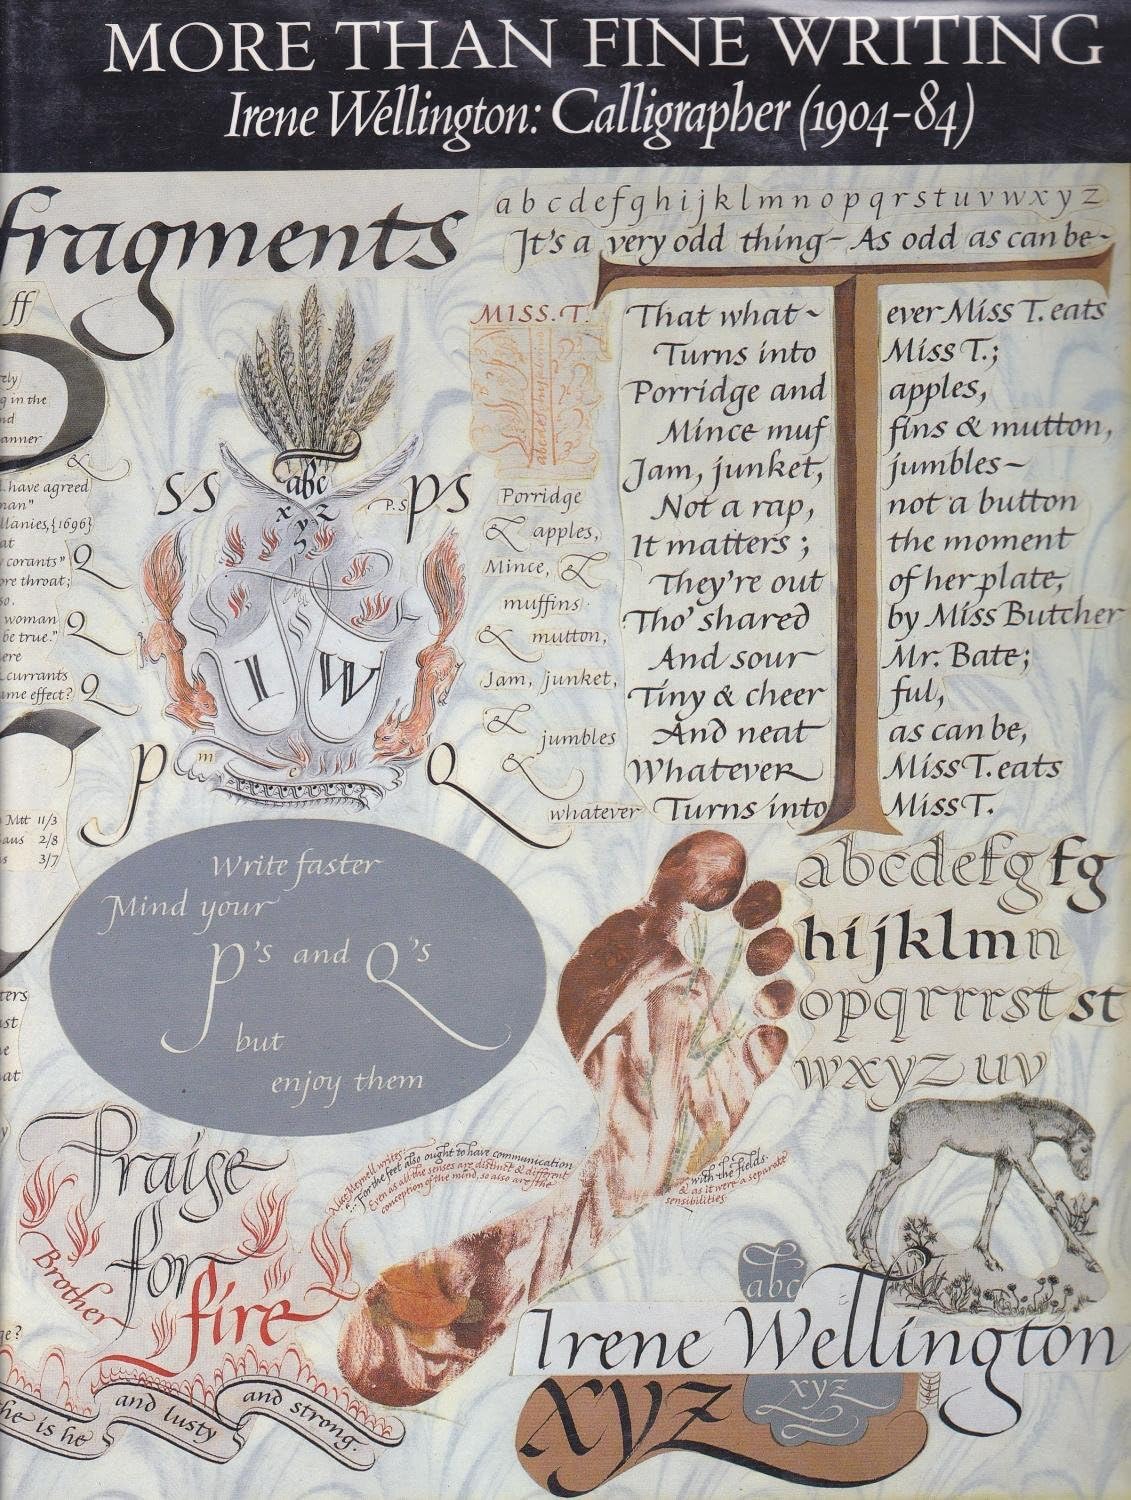 MORE THAN FINE WRITING
Irene Wellington: Calligrapher (1904–84)
fragments
abcdefghijklmnopqrstuvwxyz
It's a very odd thing – As odd as can be –
MISS.T.
That what ~ ever Miss T. eats
Turns into Miss T.;
Porridge and apples,
Mince muf fins & mutton,
Jam, junket, jumbles ~
Not a rap, not a button
It matters ; the moment
They're out of her plate,
Tho' shared by Miss Butcher
And sour Mr. Bate;
Tiny & cheer ful,
And neat as can be,
Whatever Miss T. eats
Turns into Miss T.
Porridge
& apples,
Mince, &
muffins
& mutton,
Jam, junket,
&
jumbles
&
whatever
ff
g in the
anner
&
have agreed
man"
llanies, {1696}
at
corants" Q
ore throat;
so.
woman Q
be true."
ere
currants
ame effect? Q
ss
abc
xyz
P.S
ps
I W
p
m
c
Q
Mtt 11/3
aus 2/8
s 3/7
Write faster
Mind your
P's and Q's
but
enjoy them
abcdefg fg
hijklmn
opqrrrst st
wxyz uv
Alice Meynell writes:
...For the feet also ought to have communication
Even as all the senses are distinct & different
conception of the mind, so also are the
with the fields.
& as it were a separate
sensibilities.
Praise
for
Brother
fire
he is he
and lusty
and strong.
abc
Irene Wellington
xyz
xyz